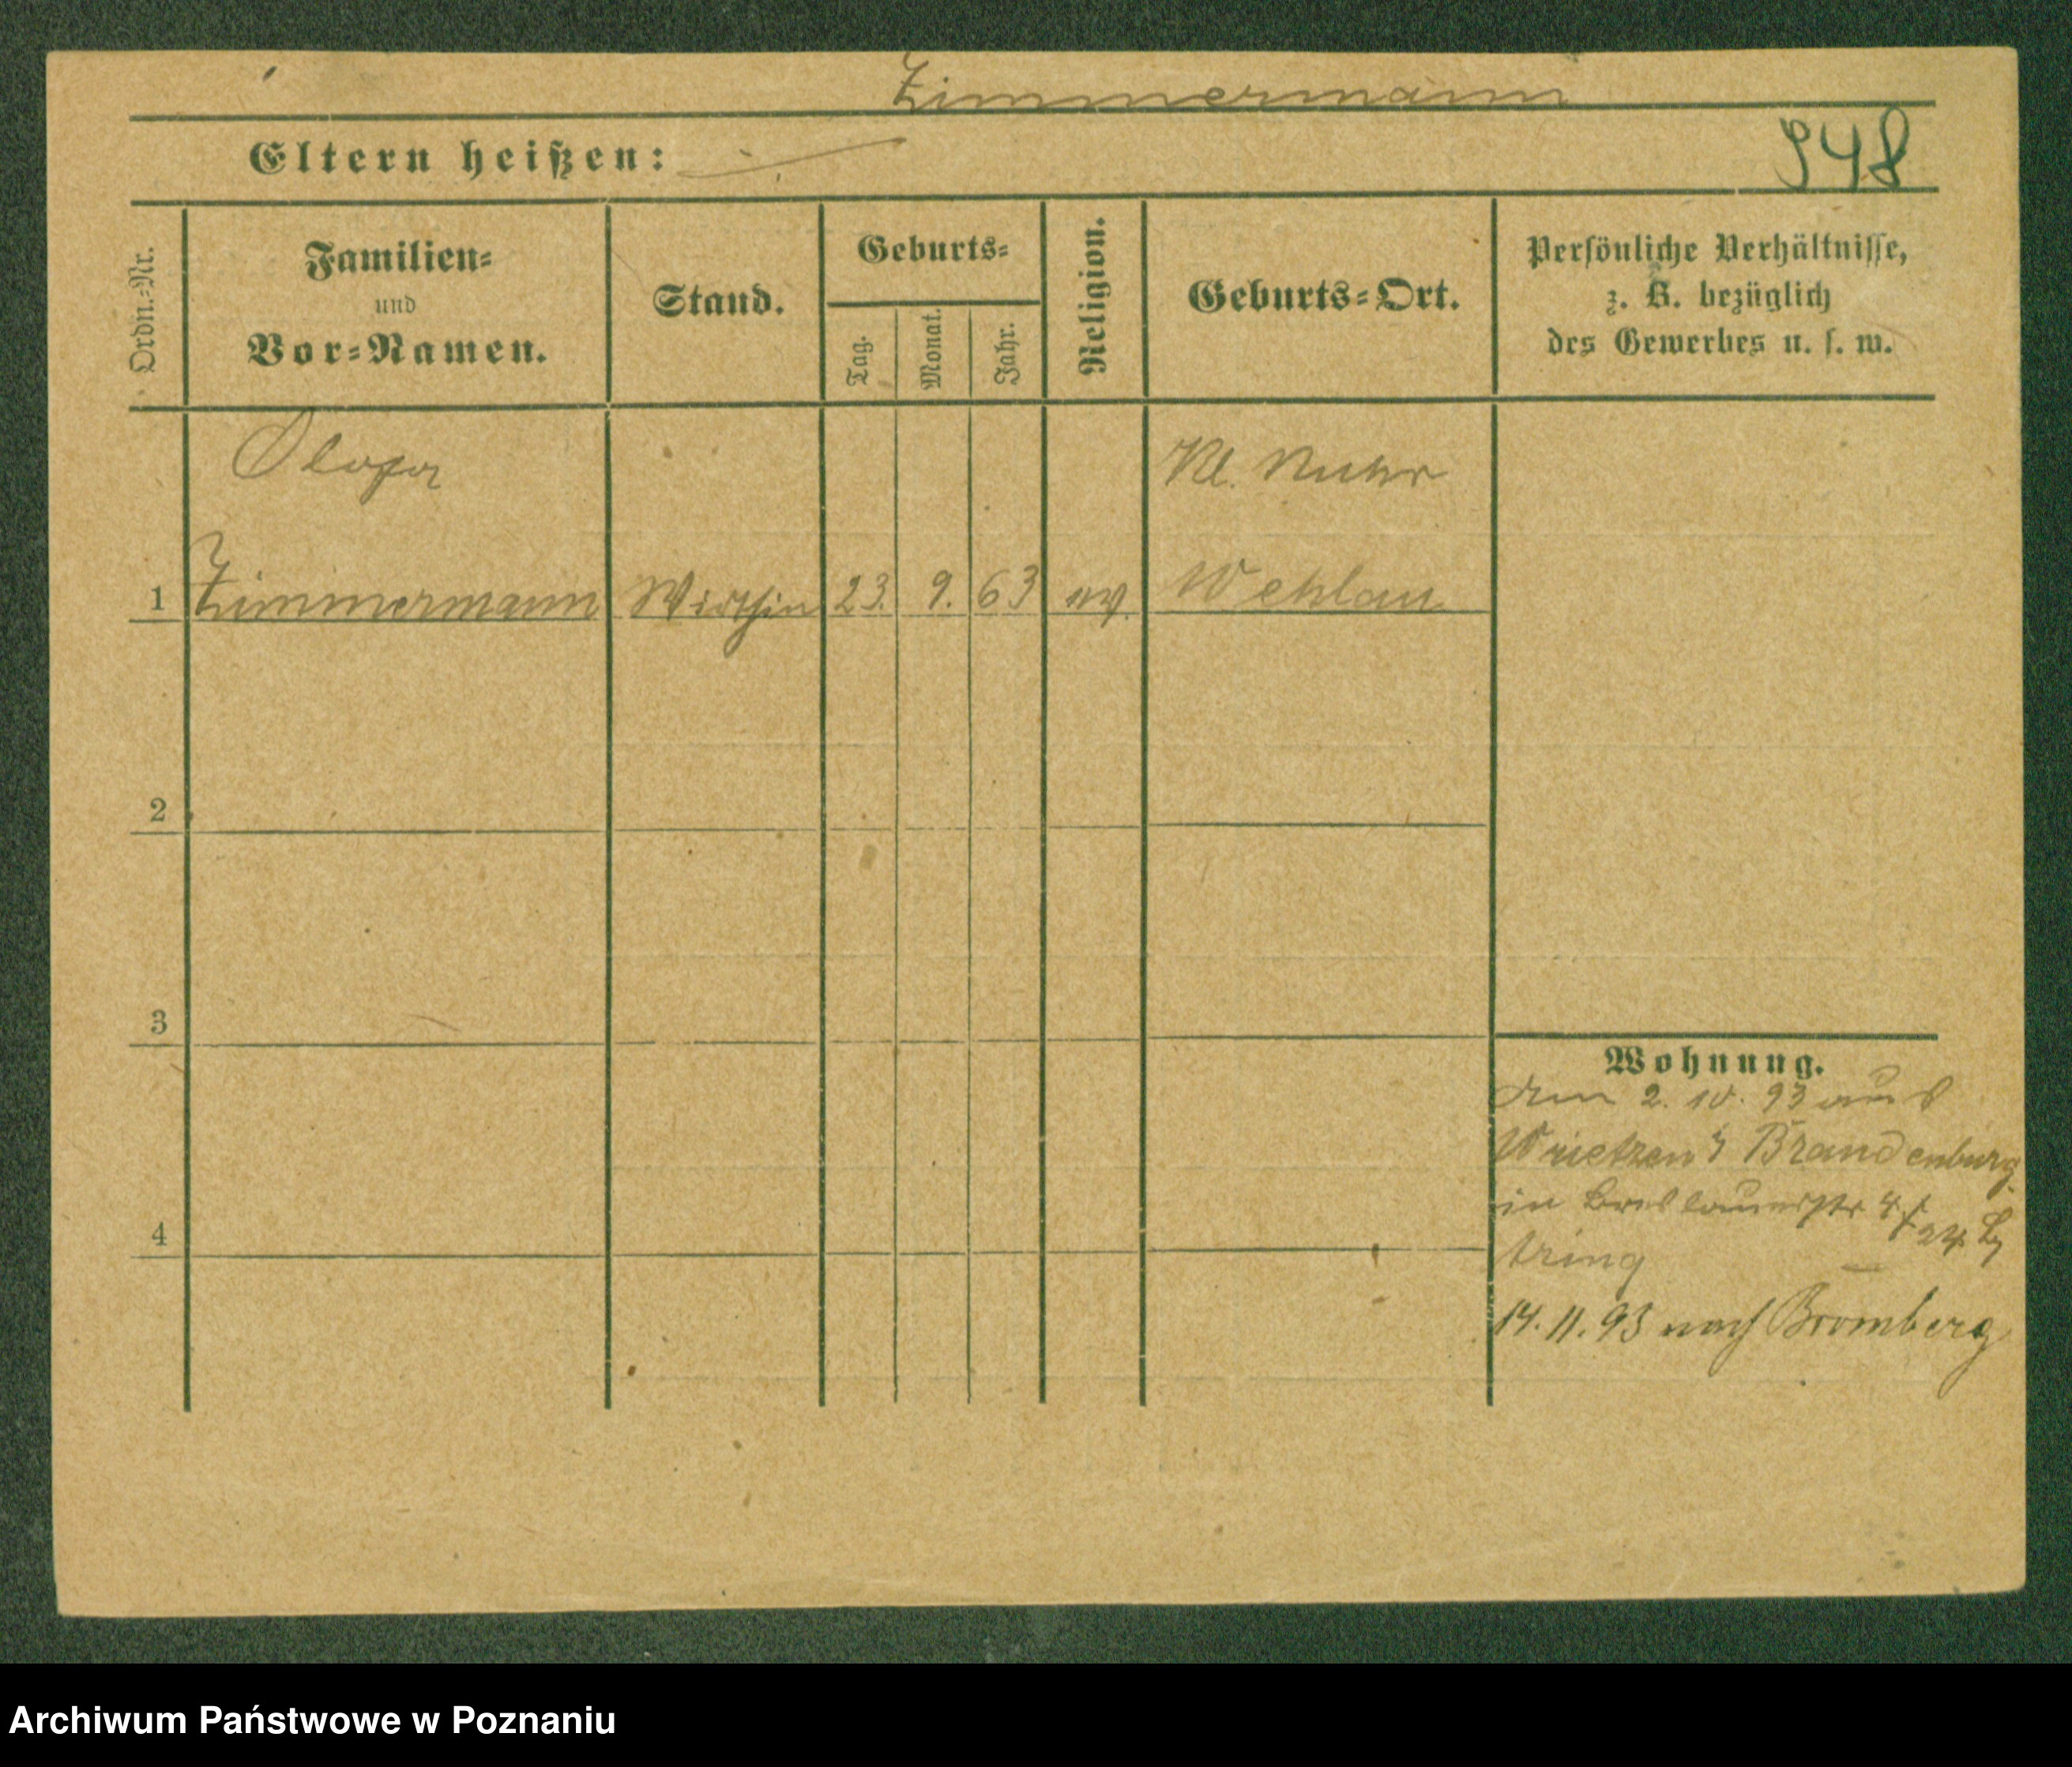 Zimmermann
Eltern heißen:
948
Ordn.-Nr.
Familien-
und
Vor-Namen.
Stand.
Geburts-
Tag.
Monat.
Jahr.
Religion.
Geburts-Ort.
Persönliche Verhältnisse,
z. B. bezüglich
des Gewerbes u. s. w.
Kl. Nuhr
1 Zimmermann Wirthin 23. 9. 63 ev. Wehlau
2
3
4
Wohnung.
Am 2. 10. 93 aus
Wrietzen Brandenburg
in Breslauerstr
14. 11. 93 nach Bromberg
Archiwum Państwowe w Poznaniu